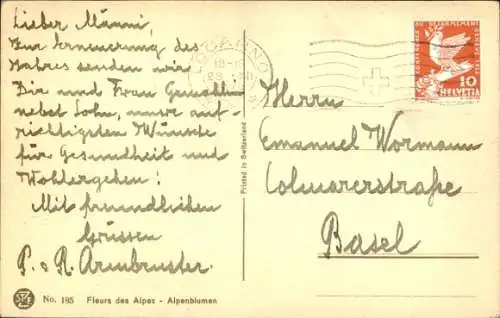 Lieber Männi,
Zur Erneuerung des
Jahres senden wir
Dir und Frau Gemahlin
nebst Sohn, unsre auf-
richtigsten Wünsche
für Gesundheit und
Wohlergehen!
Mit freundlichen
Grüssen
P. & R. Armbruster.
LOCARNO
Printed in Switzerland
10
HELVETIA
Herrn
Emanuel Wormann
Colmarerstraße
Basel
No. 195 Fleurs des Alpes - Alpenblumen